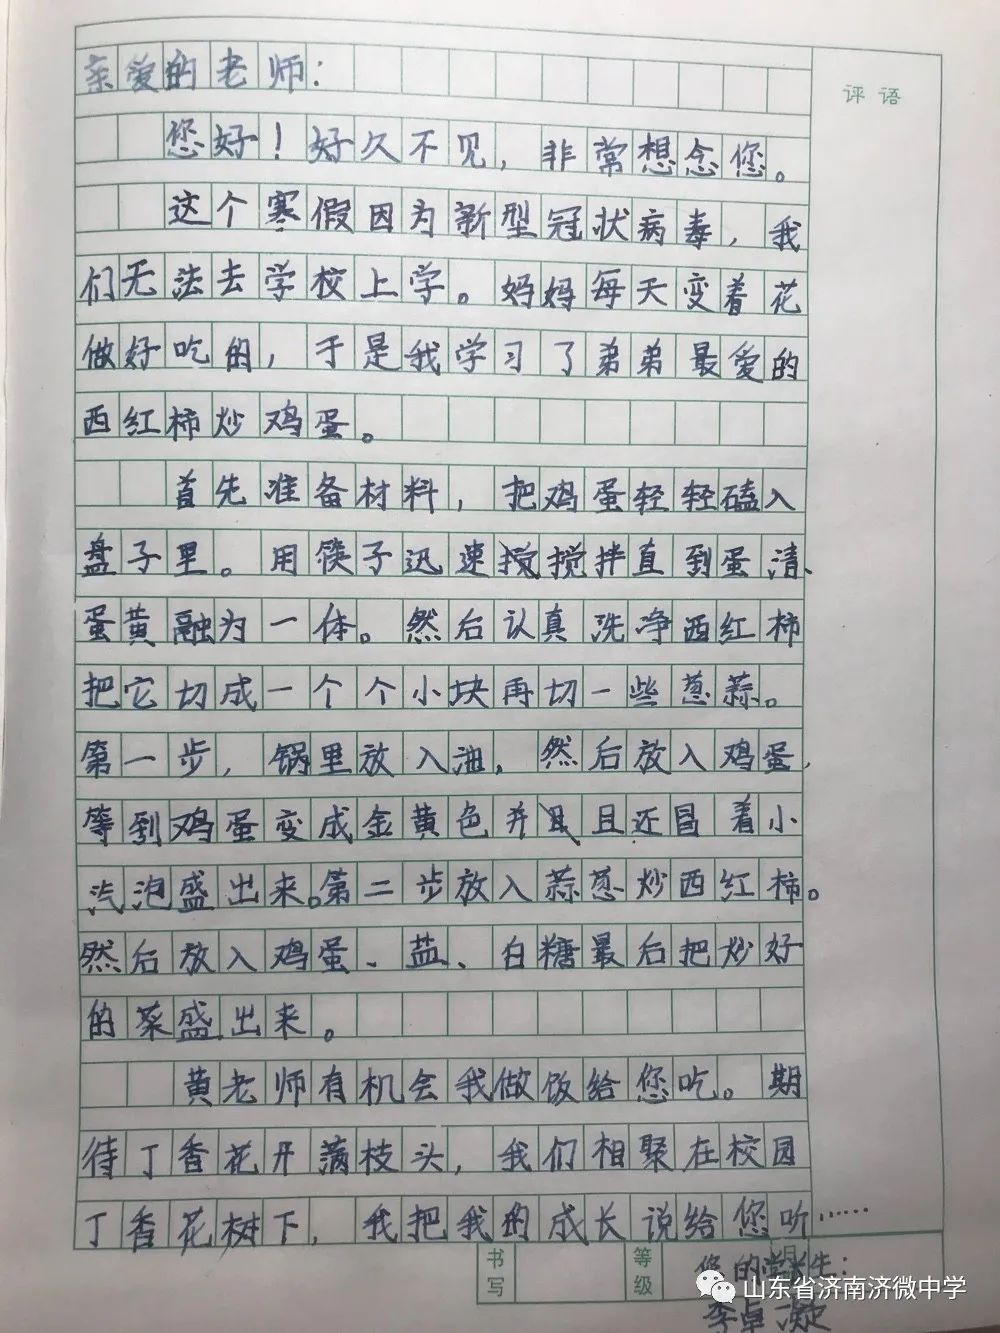 亲爱的老师：
评语
您好！好久不见，非常想念您。
这个寒假因为新型冠状病毒，我
们无法去学校上学。妈妈每天变着花
做好吃的，于是我学习了弟弟最爱的
西红柿炒鸡蛋。
首先准备材料，把鸡蛋轻轻磕入
盘子里。用筷子迅速搅拌直到蛋清、
蛋黄融为一体。然后认真洗净西红柿
把它切成一个个小块再切一些葱蒜。
第一步，锅里放入油，然后放入鸡蛋，
等到鸡蛋变成金黄色并且还冒着小
汽泡盛出来。第二步放入蒜葱炒西红柿。
然后放入鸡蛋、盐、白糖最后把炒好
的菜盛出来。
黄老师有机会我做饭给您吃。期
待丁香花开满枝头，我们相聚在校园
丁香花树下，我把我的成长说给您听……
书写
等级
您的学生：
李卓凝
山东省济南济微中学